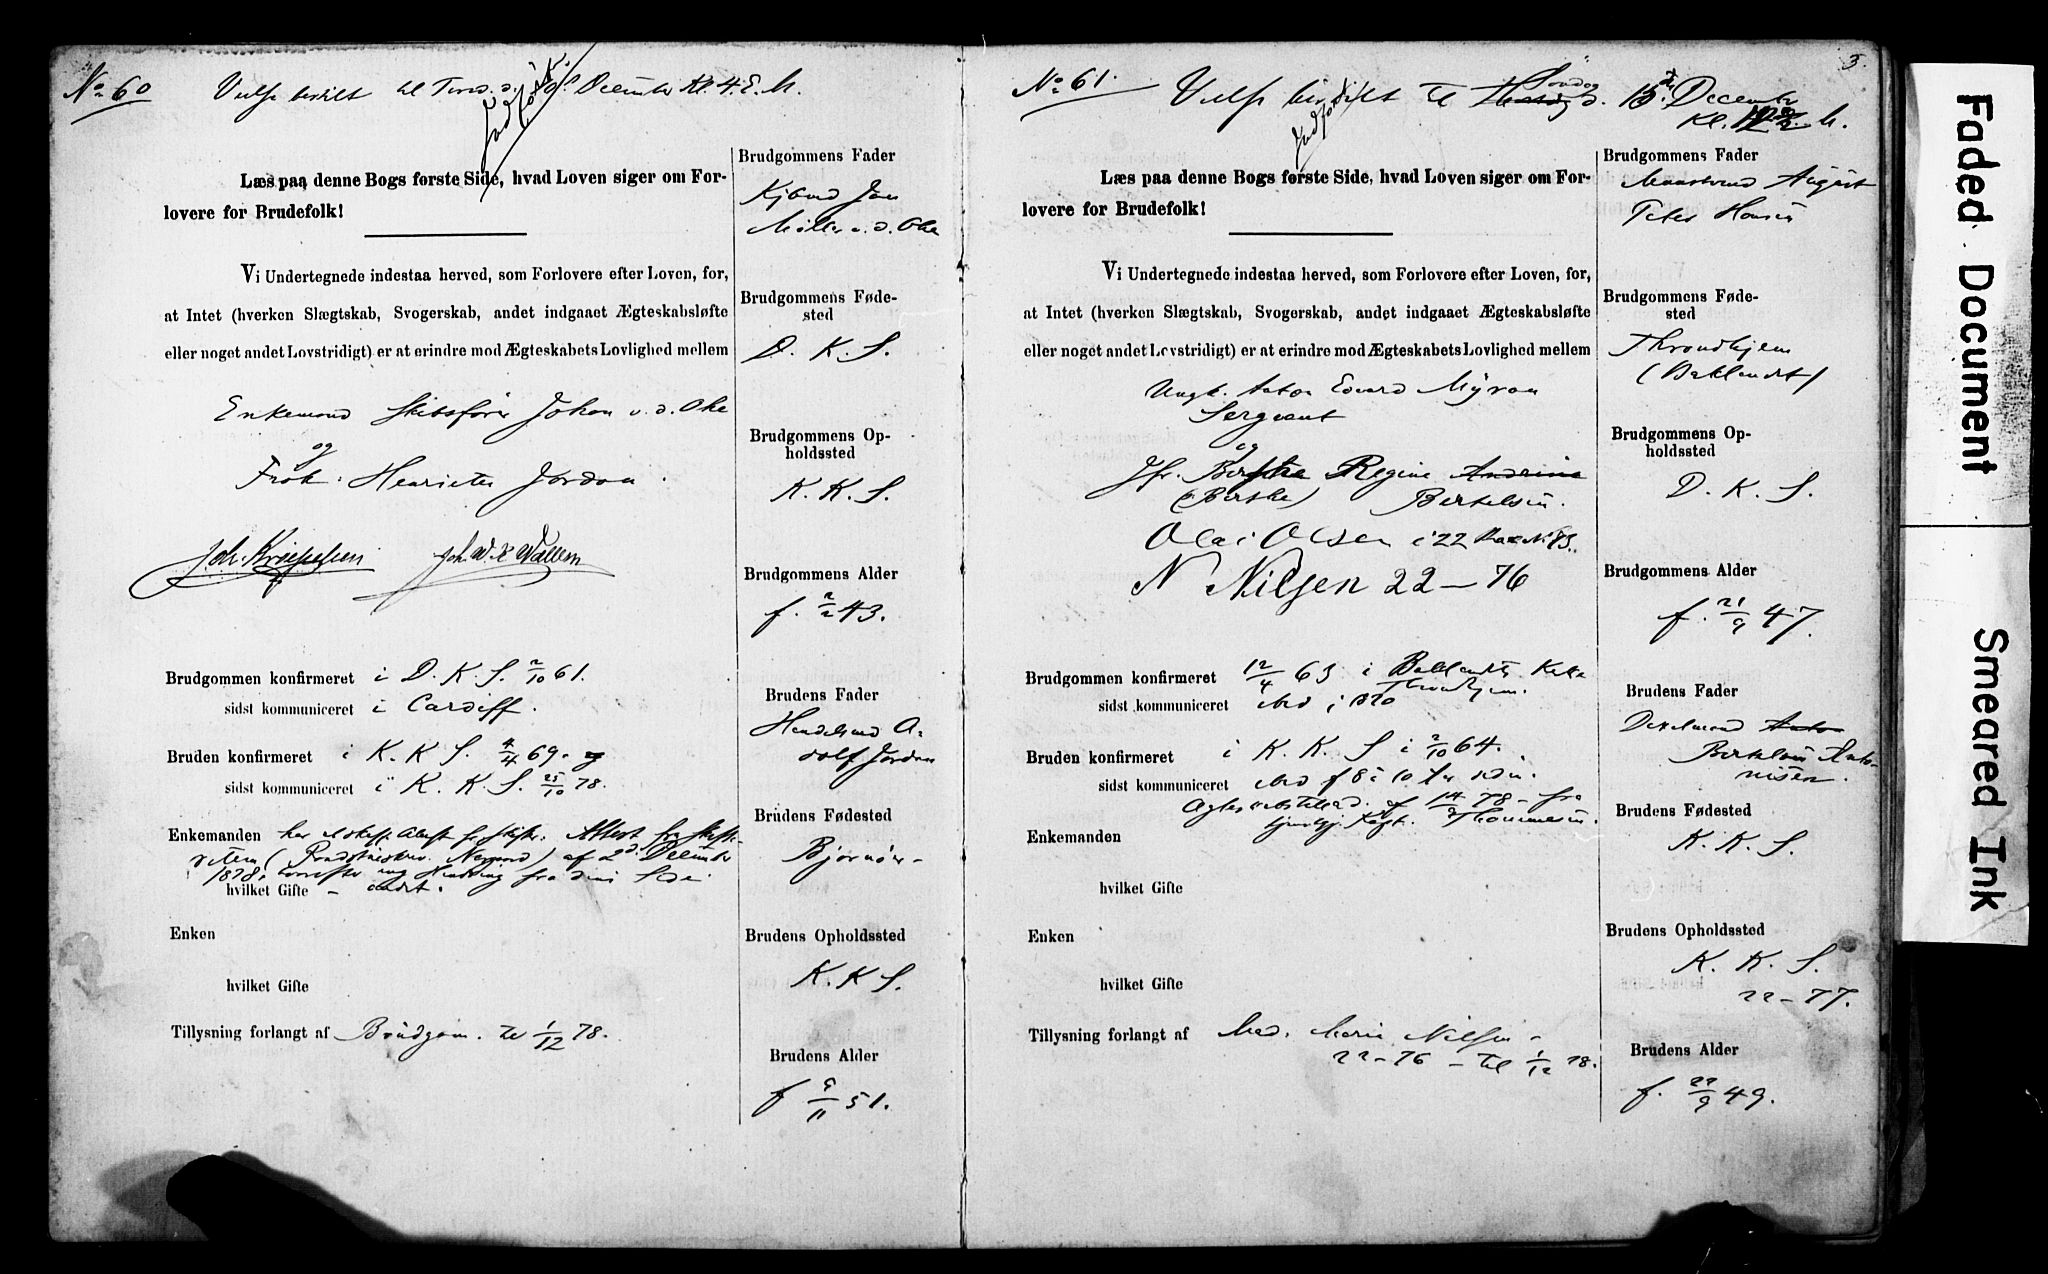 No 60 Vielse bestilt til Torsd. d. December Kl. 4. E. M.
Indført K.
Læs paa denne Bogs første Side, hvad Loven siger om For-
lovere for Brudefolk!
Vi Undertegnede indestaa herved, som Forlovere efter Loven, for,
at Intet (hverken Slægtskab, Svogerskab, andet indgaaet Ægteskabsløfte
eller noget andet Lovstridigt) er at erindre mod Ægteskabets Lovlighed mellem
Enkemand Skibsfører Johan v. d. Ohe
og
Frøk. Henriette Jordan.
Joh. W. Wallem
Brudgommen konfirmeret i D. K. S. 2/10 61.
sidst kommuniceret i Cardiff.
Bruden konfirmeret i K. K. S. 4/4 69. og
sidst kommuniceret i K. K. S. 25/10 78.
Enkemanden har Attest fra Skifte-
retten af 2d. December
1878,
hvilket Gifte – andet.
Enken
hvilket Gifte
Tillysning forlangt af Brudgom. til 1/12 78.
Brudgommens Fader
Kjøbmd Jan
Møller v. d. Ohe
Brudgommens Føde-
sted
D. K. S.
Brudgommens Op-
holdssted
K. K. S.
Brudgommens Alder
f. 2/2 43.
Brudens Fader
Handelsmd A-
dolf Jordan
Brudens Fødested
Bjørnør
Brudens Opholdssted
K. K S.
Brudens Alder
f 9/11 51.
3.
No 61. Vielse bestilt til Søndag d. 15de December
Kl. M.
Indført
Læs paa denne Bogs første Side, hvad Loven siger om For-
lovere for Brudefolk!
Vi Undertegnede indestaa herved, som Forlovere efter Loven, for,
at Intet (hverken Slægtskab, Svogerskab, andet indgaaet Ægteskabsløfte
eller noget andet Lovstridigt) er at erindre mod Ægteskabets Lovlighed mellem
Ungk. Anton Edvard Myran
Sergeant
og
Jfr. Berthe Regine Andrine
(Berthe) Bertelsen.
Olai Olsen i 22 No 73.
N Nilsen 22 – 76
Brudgommen konfirmeret 12/4 63 i Baklandets Kirke
Throndhjem.
sidst kommuniceret ibid i 1870
Bruden konfirmeret i K. K. S i 2/10 64.
sidst kommuniceret ibid f 8 à 10 Aar siden.
78 – fra
Kapt. Thommesen.
Enkemanden
hvilket Gifte
Enken
hvilket Gifte
Tillysning forlangt af Mad. Marie Nilsen –
22 – 76 – til 1/12 78.
Brudgommens Fader
August
Peter Hansen
Brudgommens Føde-
sted
Throndhjem
(Baklandet)
Brudgommens Op-
holdssted
D. K. S.
Brudgommens Alder
f. 21/9 47.
Brudens Fader
Anton
Bertelsen Anto-
nisen.
Brudens Fødested
K. K. S.
Brudens Opholdssted
K. K. S.
22 – 77.
Brudens Alder
f. 22/9 49.
Faded Document
Smeared Ink